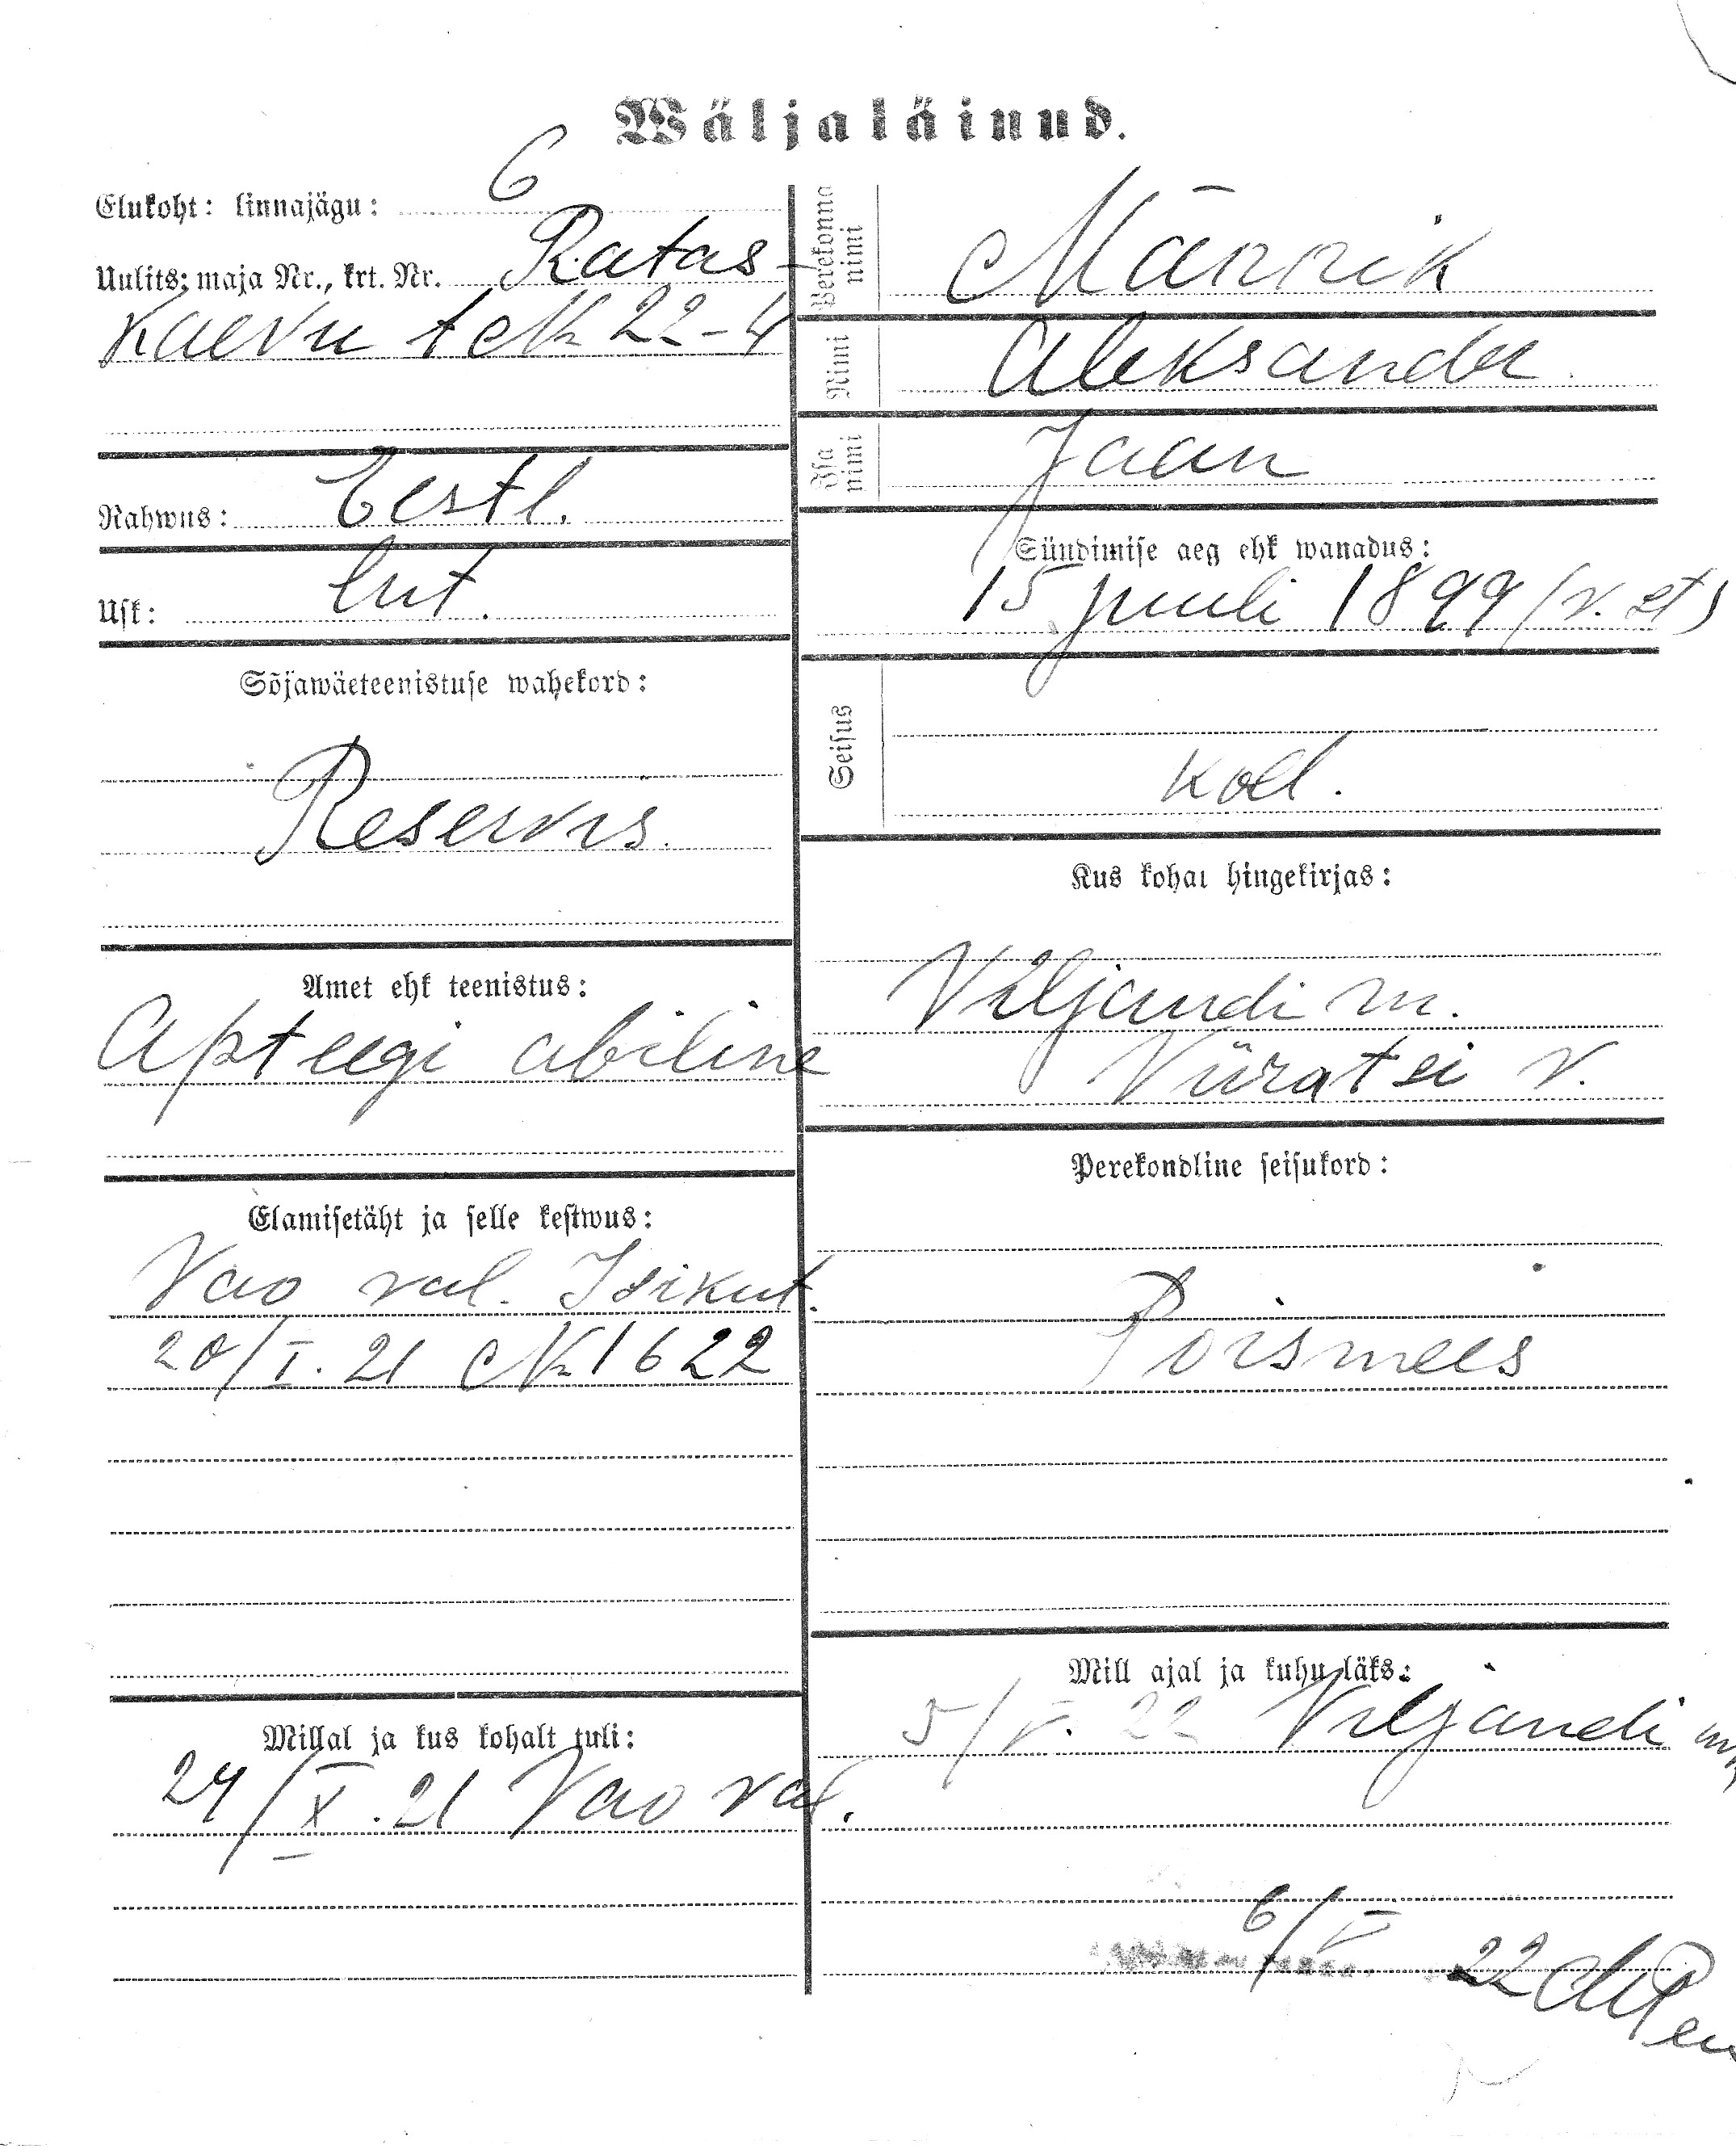 Wäljaläinud.
Elukoht: linnajägu: 6
Uulits: maja Nr., krt. Nr. Ratas-
kaevu tek 22-4
Rahwus: Eestl.
Usk: lut.
Sõjawäeteenistuse wahekord:
Reservis.
Amet ehk teenistus:
Apteegi abiline
Elamisetäht ja selle kestwus:
Vao val. Isikut.
20/I. 21 № 1622
Millal ja kus kohalt tuli:
24/X. 21 Vao val.
Perekonna nimi
Männik
Nimi
Aleksander
Isa nimi
Jaan
Sündimise aeg ehk wanadus:
15 juuli 1899 (v. st)
Seisus
kod.
Kus kohal hingekirjas:
Viljandi m.
Viiratsi v.
Perekondline seisukord:
Poismees
Mill ajal ja kuhu läks:
5/V. 22 Viljandi m
6/V 22